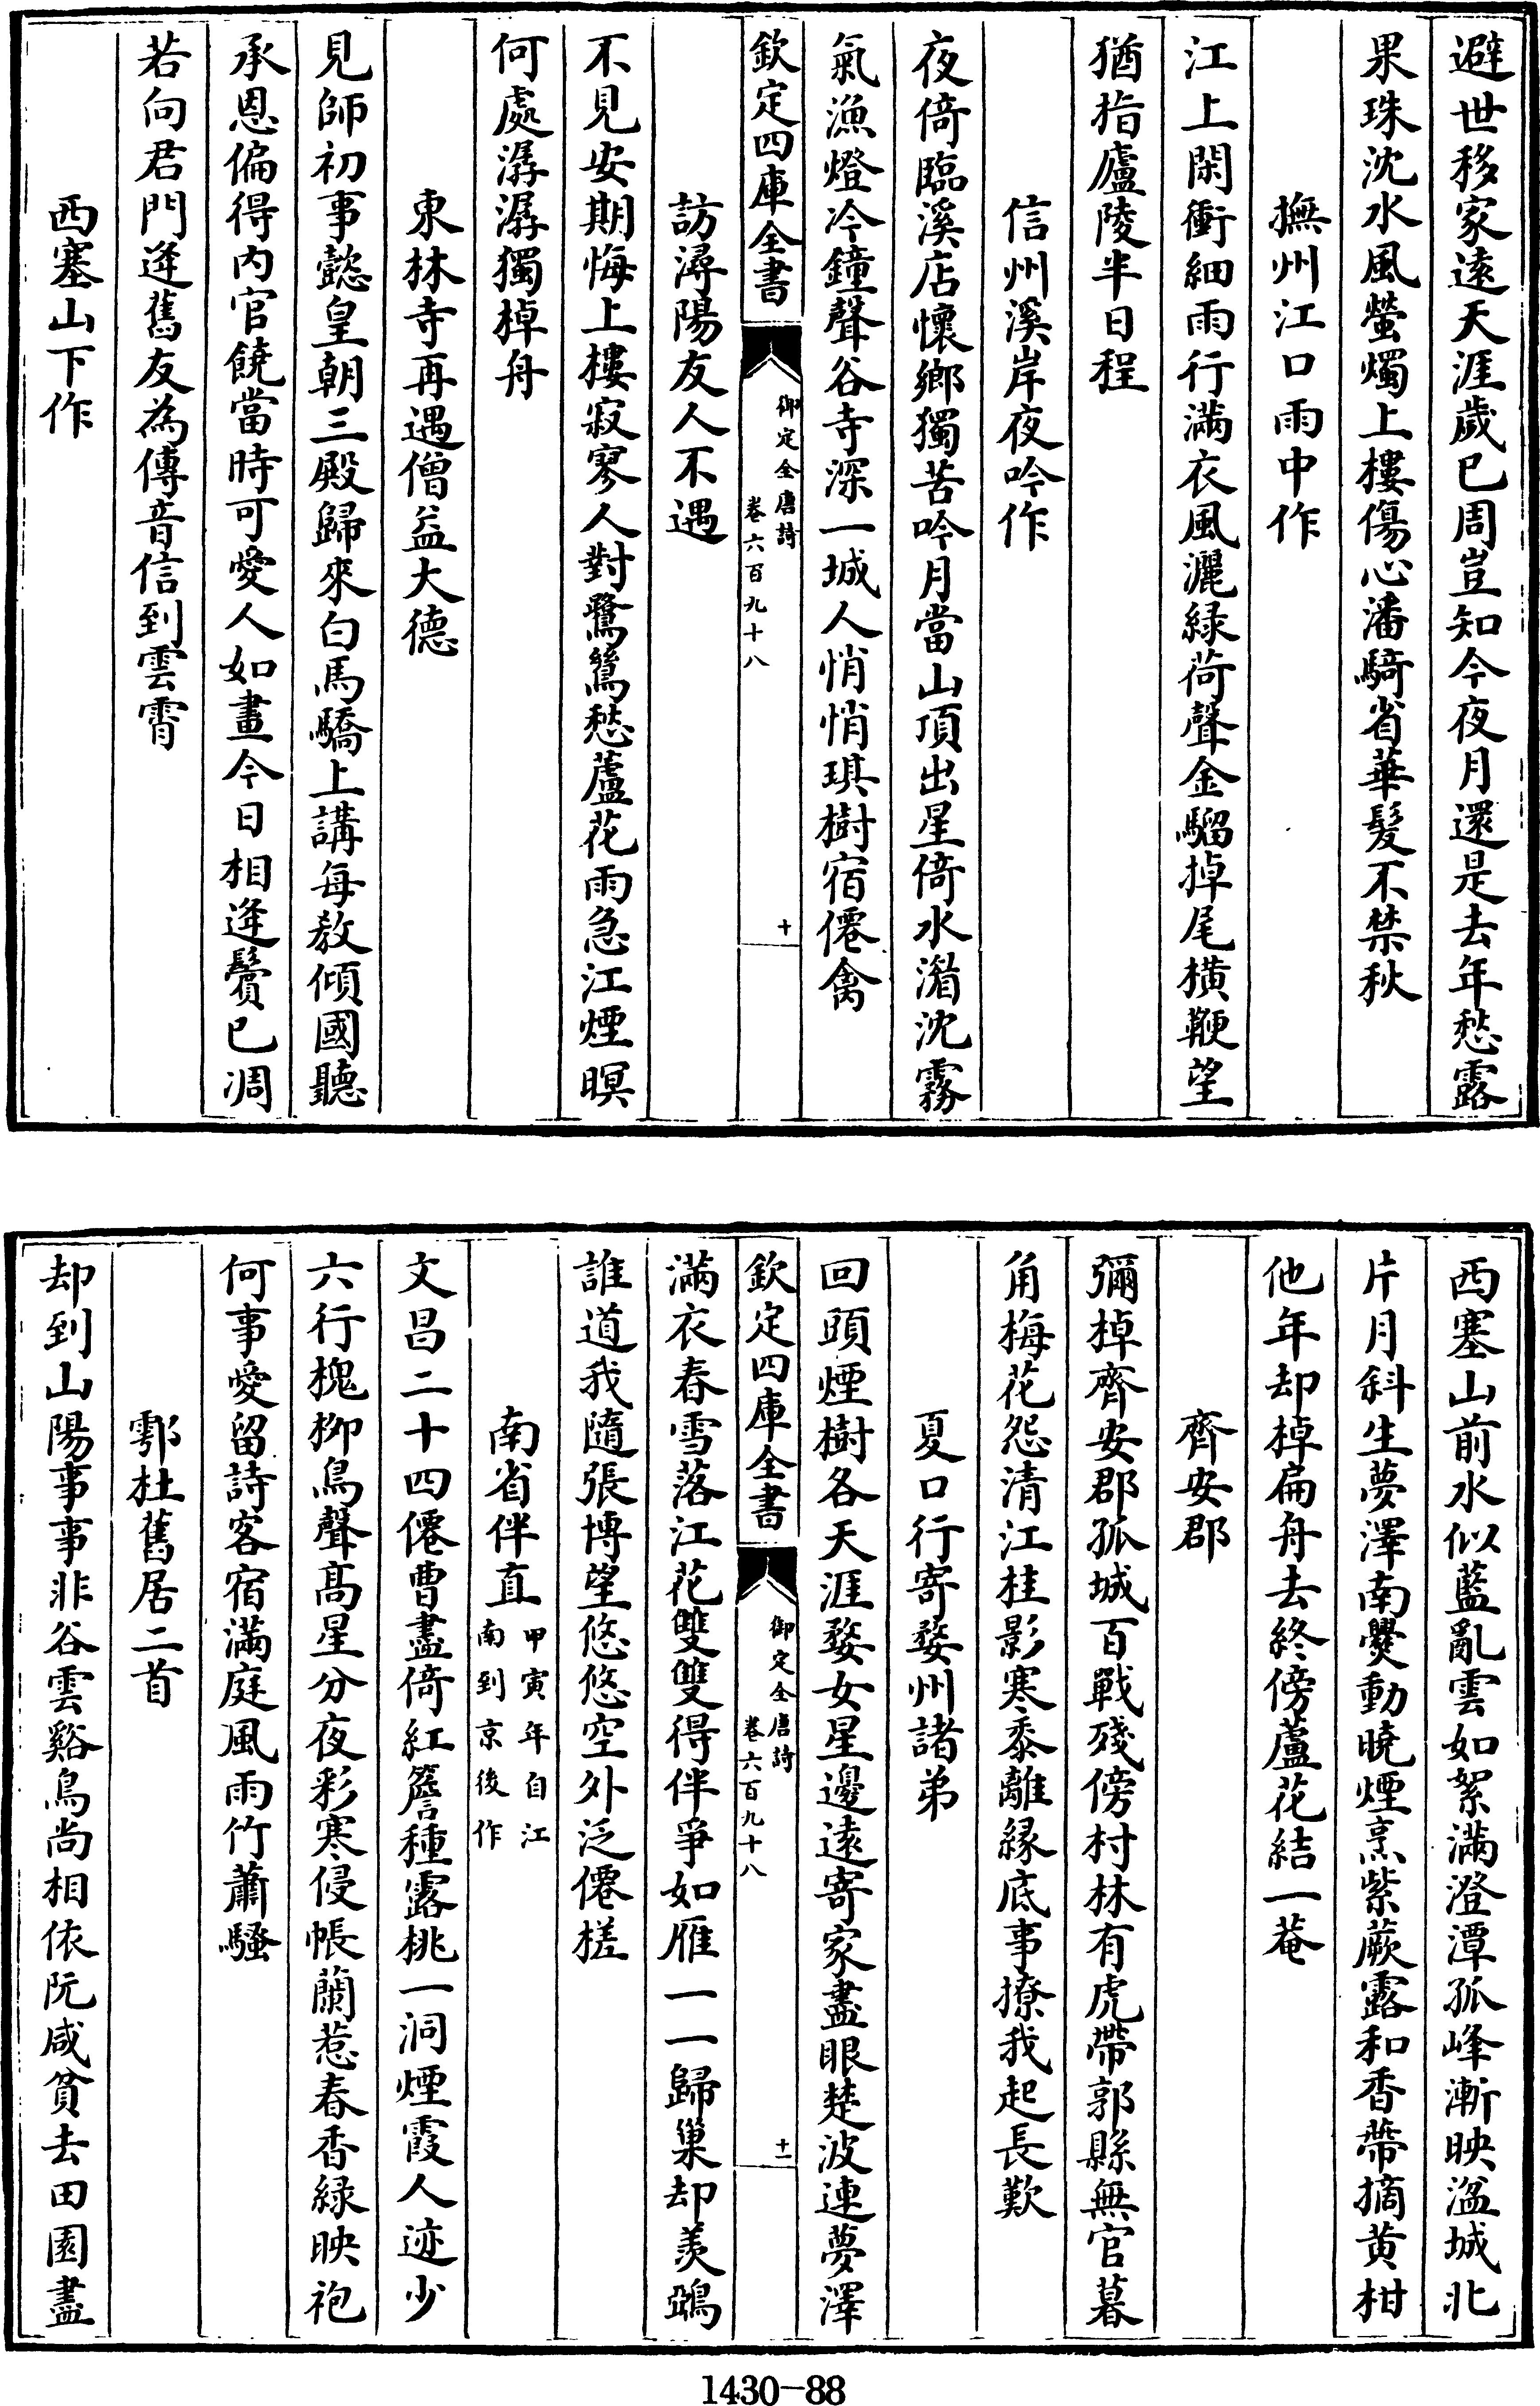 避世移家遠天涯歲已周豈知今夜月還是去年愁露
果珠沈水風螢燭上樓傷心潘騎省華髮不禁秋
撫州江口雨中作
江上閑衝細雨行滿衣風灑綠荷聲金騮掉尾橫鞭望
猶指廬陵半日程
信州溪岸夜吟作
夜倚臨溪店懷鄉獨苦吟月當山頂出星倚水湄沈霧
氣漁燈冷鐘聲谷寺深一城人悄悄琪樹宿僊禽
欽定四庫全書
御定全唐詩
卷六百九十八
十
訪潯陽友人不遇
不見安期悔上樓寂寥人對鷺鷥愁蘆花雨急江煙暝
何處潺潺獨棹舟
東林寺再遇僧益大德
見師初事懿皇朝三殿歸來白馬驕上講每教傾國聽
承恩偏得內官饒當時可愛人如畫今日相逢鬢已凋
若向君門逢舊友為傳音信到雲霄
西塞山下作
西塞山前水似藍亂雲如絮滿澄潭孤峰漸映湓城北
片月斜生夢澤南爨動曉煙烹紫蕨露和香蔕摘黃柑
他年却棹扁舟去終傍蘆花結一菴
齊安郡
彌棹齊安郡孤城百戰殘傍村林有虎帶郭縣無官暮
角梅花怨清江桂影寒黍離緣底事撩我起長歎
夏口行寄婺州諸弟
回頭煙樹各天涯婺女星邊遠寄家盡眼楚波連夢澤
欽定四庫全書
御定全唐詩
卷六百九十八
十一
滿衣春雪落江花雙雙得伴爭如雁一一歸巢却羨鴉
誰道我隨張博望悠悠空外泛僊槎
南省伴直甲寅年自江南到京後作
文昌二十四僊曹盡倚紅簷種露桃一洞煙霞人迹少
六行槐柳鳥聲高星分夜彩寒侵帳蘭惹春香綠映袍
何事愛留詩客宿滿庭風雨竹蕭騷
鄠杜舊居二首
却到山陽事事非谷雲谿鳥尚相依阮咸貧去田園盡
1430-88